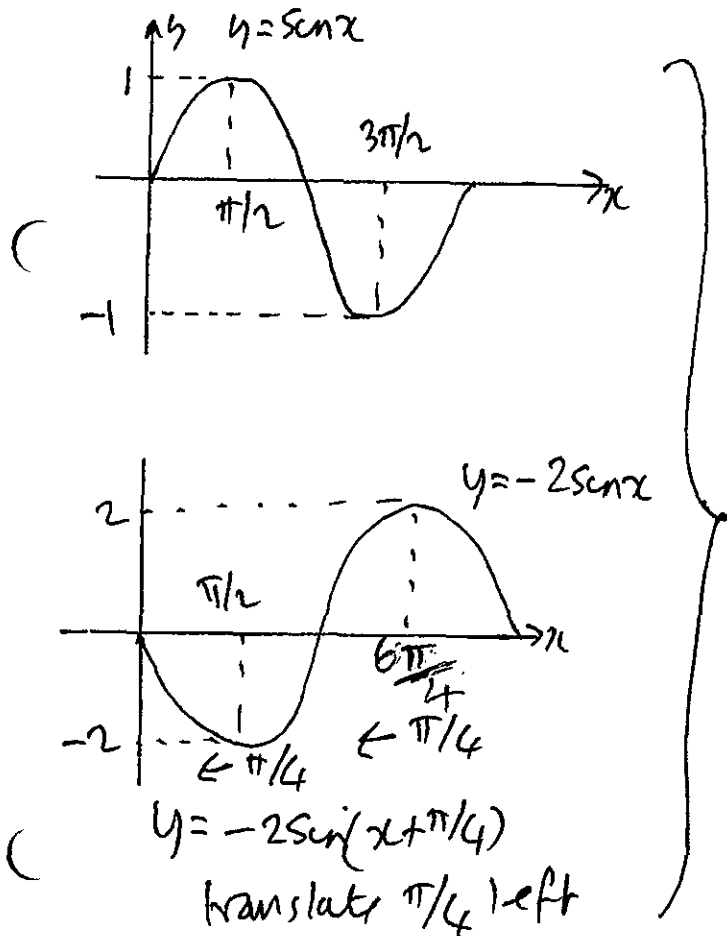 y y = sin x
1
3π/2
π/2 x
-1
y = -2 sin x
2
π/2
x
6π/4
-2
← π/4 ← π/4
y = -2 sin(x + π/4)
translate π/4 left